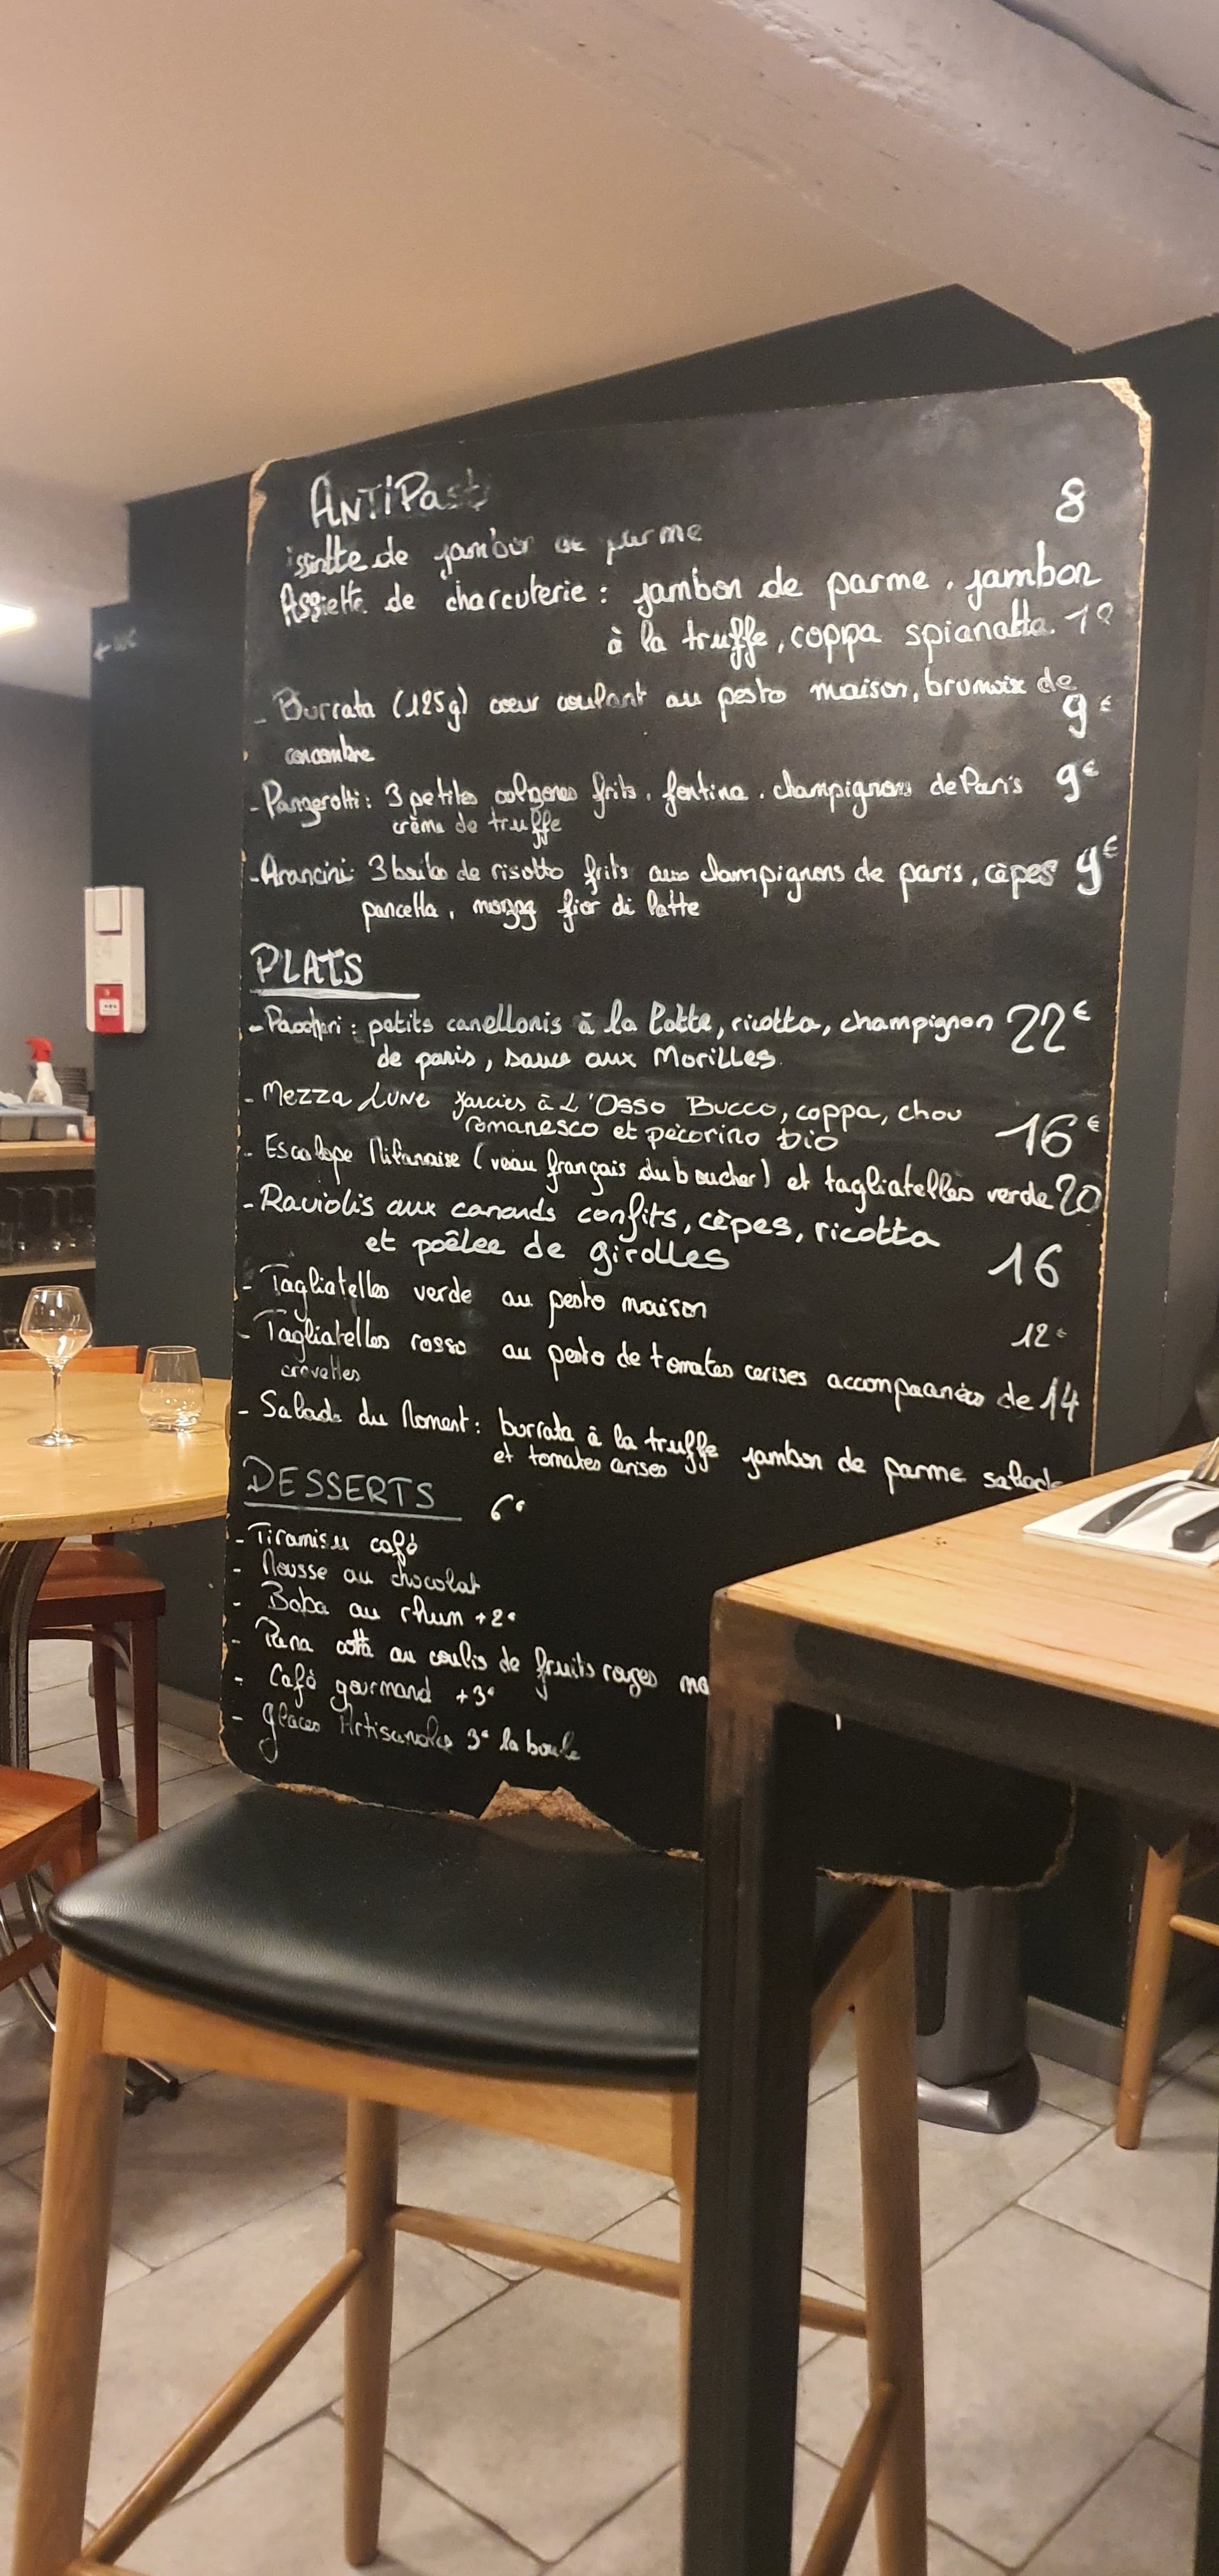 ANTiPasti
8
de jambon de parme
Assiette de charcuterie : jambon de parme, jambon
à la truffe, coppa spianatta.
- Burrata (125g) coeur coulant au pesto maison, brunoix de
9€
concombre
- Panzerotti : 3 petites calzones frits, fontina, champignons de Paris 9€
crème de truffe
- Arancini : 3 boules de risotto frits aux champignons de paris, cèpes 9€
pancetta, mozza fior di latte
PLATS
- Paccheri : petits canellonis à la Lotte, ricotta, champignon 22€
de paris, sauce aux Morilles
- Mezza LUNE farcies à L'Osso Bucco, coppa, chou
romanesco et pecorino bio 16€
- Escalope Milanaise (veau français du boucher) et tagliatelles verde 20
- Raviolis aux canards confits, cèpes, ricotta
et poêlée de girolles 16
- Tagliatelles verde au pesto maison 12€
- Tagliatelles rosso au pesto de tomates cerises accompagnées de 14
crevettes
- Salade du Moment : burrata à la truffe jambon de parme salade
et tomates cerises
DESSERTS 6€
- Tiramisu café
- Mousse au chocolat
- Baba au rhum +2€
- Pana cotta au coulis de fruits rouges
- Café gourmand +3€
- Glaces Artisanales 3€ la boule